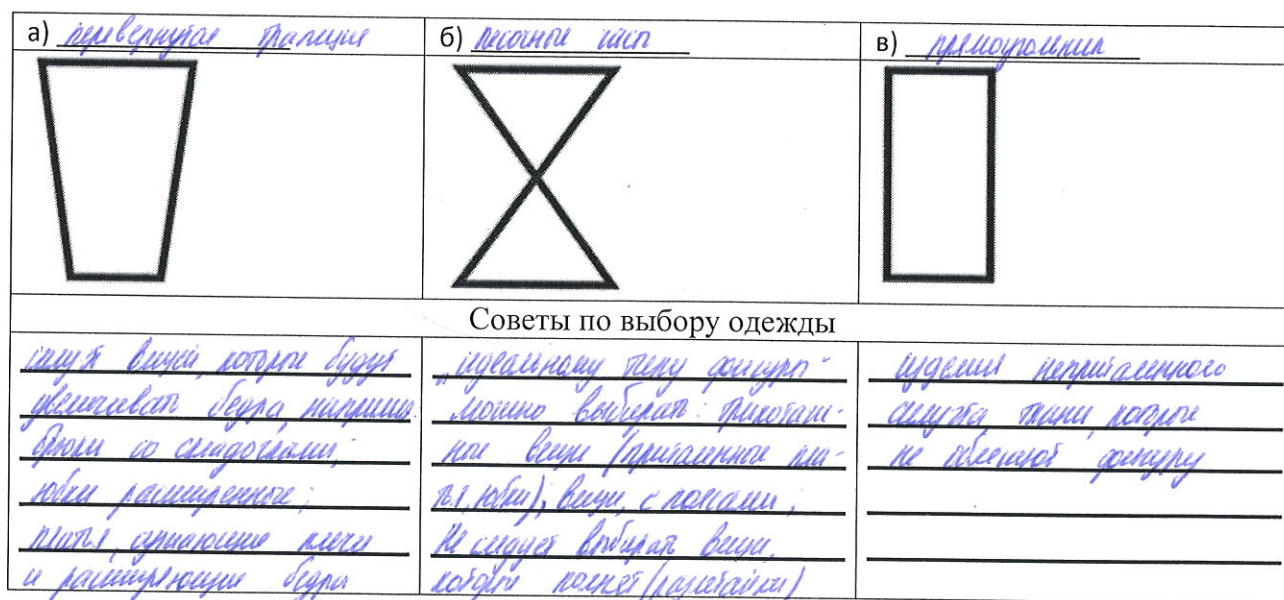 а) перевернутая трапеция
б) песочные часы
в) прямоугольник
Советы по выбору одежды
вещей, которые будут
увеличивать бедра, например
брюки со складочками;
юбки расширенные;
платья, сужающие плечи
и расширяющие бедра
„идеальному типу фигуры"
можно выбирать: трикотаж-
ные вещи (приталенные пла-
тья, юбки); вещи, с поясами;
Не следует выбирать вещи,
которые полнят (разлетайки)
изделия неприталенного
силуэта, ткани, которые
не облегают фигуру